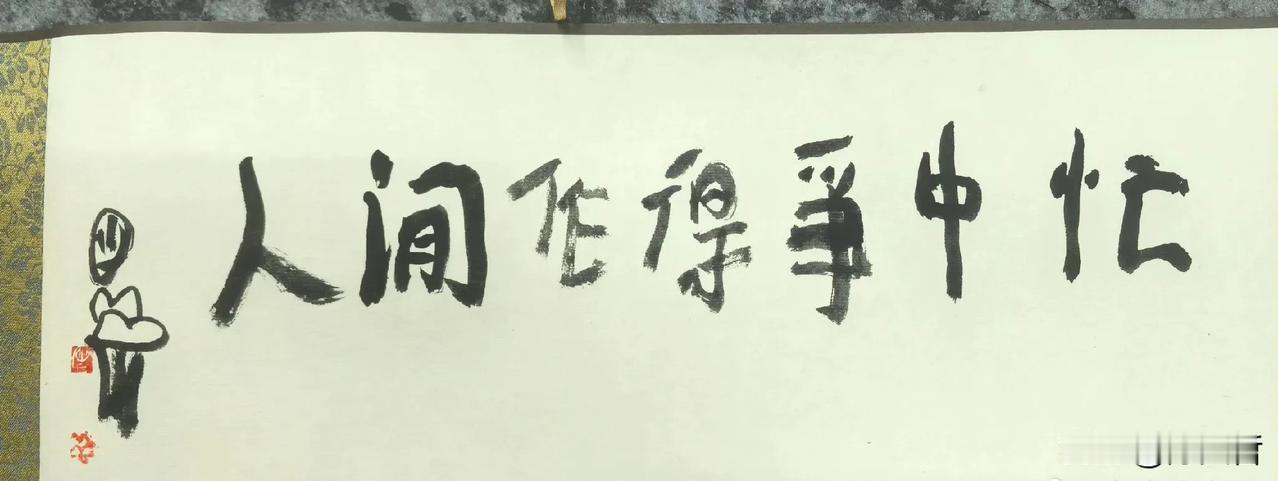 忙中爭得作閒人